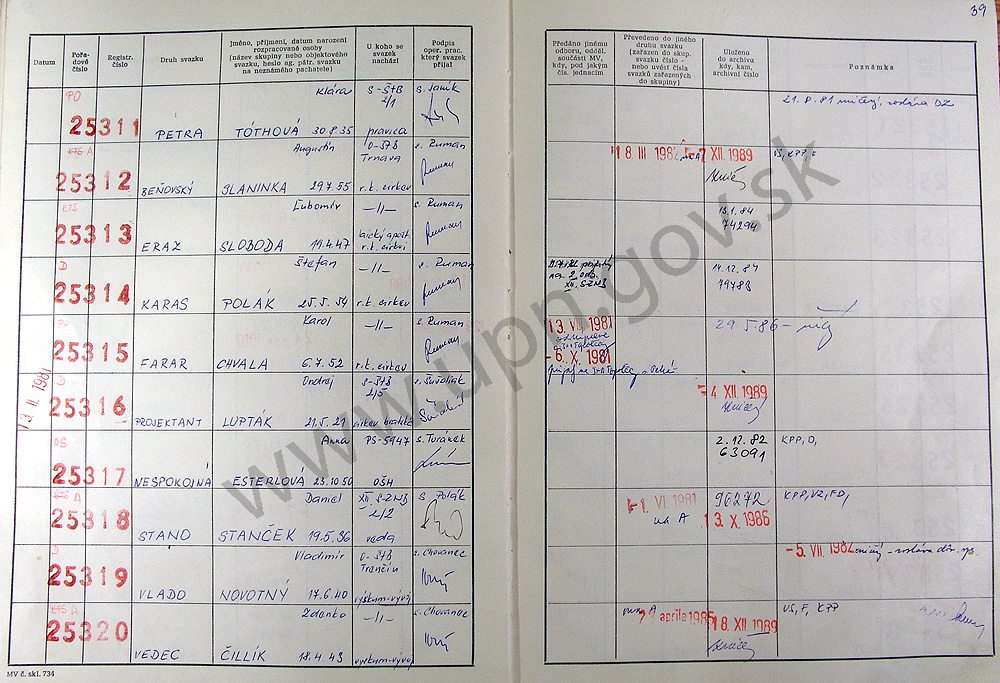 39
Datum
Pořa-
dové
číslo
Registr.
číslo
Druh svazku
Jméno, příjmení, datum narození
rozpracované osoby
(název skupiny nebo objektového
svazku, heslo ag. pátr. svazku
na neznámého pachatele)
U koho se
svazek
nachází
Podpis
oper. prac.
který svazek
přijal
Předáno jinému
odboru, odděl.
součásti MV,
kdy, pod jakým
čís. jednacím
Převedeno do jiného
druhu svazku
(zařazen do skup.
svazku číslo -
nebo uvést čísla
svazků zařazených
do skupiny)
Uloženo
do archivu
kdy, kam,
archivní číslo
Poznámka
PO
25311
PETRA
Klára
TÓTHOVÁ 30.8.35
S-ŠtB
2/1
pravica
s. Janík
21.8.81
KTS A
25312
BEŇOVSKÝ
Augustín
SLANINKA 29.7.55
O-ŠtB
Trnava
r.k. cirkev
s. Ruman
18 III 1982
7 XII. 1989
KTS
25313
ERAZ
Ľubomír
SLOBODA 19.4.47
-//-
r.k. cirkev
s. Ruman
74294
D
25314
KARAS
Štefan
POLÁK 25.5.54
-//-
r.k. cirkev
s. Ruman
XII. S-ZNB
14.12.84
25315
FARAR
Karol
CHVALA 6.7.52
-//-
r.k. cirkev
s. Ruman
13. VIII 1981
-6. X. 1981
29.5.86
13 II. 1981
D
25316
PROJEKTANT
Ondrej
LUPTÁK 21.5.21
S-ŠtB
2/5
-4 XII. 1989
25317
NESPOKOJNÁ
Anna
ESTERLOVÁ 23.10.50
PS-5947
OŠH
s. Turánek
2.12.82
63091
KPP, O,
KTS A
25318
STANO
Daniel
STANČEK 19.5.36
XII S-ZNB
2/2
veda
s. Polák
-1. VI. 1981
na A
96272
13. X. 1986
KPP, VZ, FD,
D
25319
VLADO
Vladimír
NOVOTNÝ 17.6.40
O-ŠtB
Trenčín
výskum-vývoj
s. Chovanec
-5. VII. 1982
KTS A
25320
VEDEC
Zdenko
ČILLÍK 18.4.43
-//-
výskum-vývoj
s. Chovanec
apríla 1985
18. XII. 1989
VS, F, KPP
MV č. skl. 734
www.upn.gov.sk